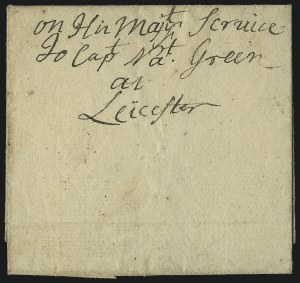 on His Maj.ts Service
To Cap.t Na.t Green
at
Leicester